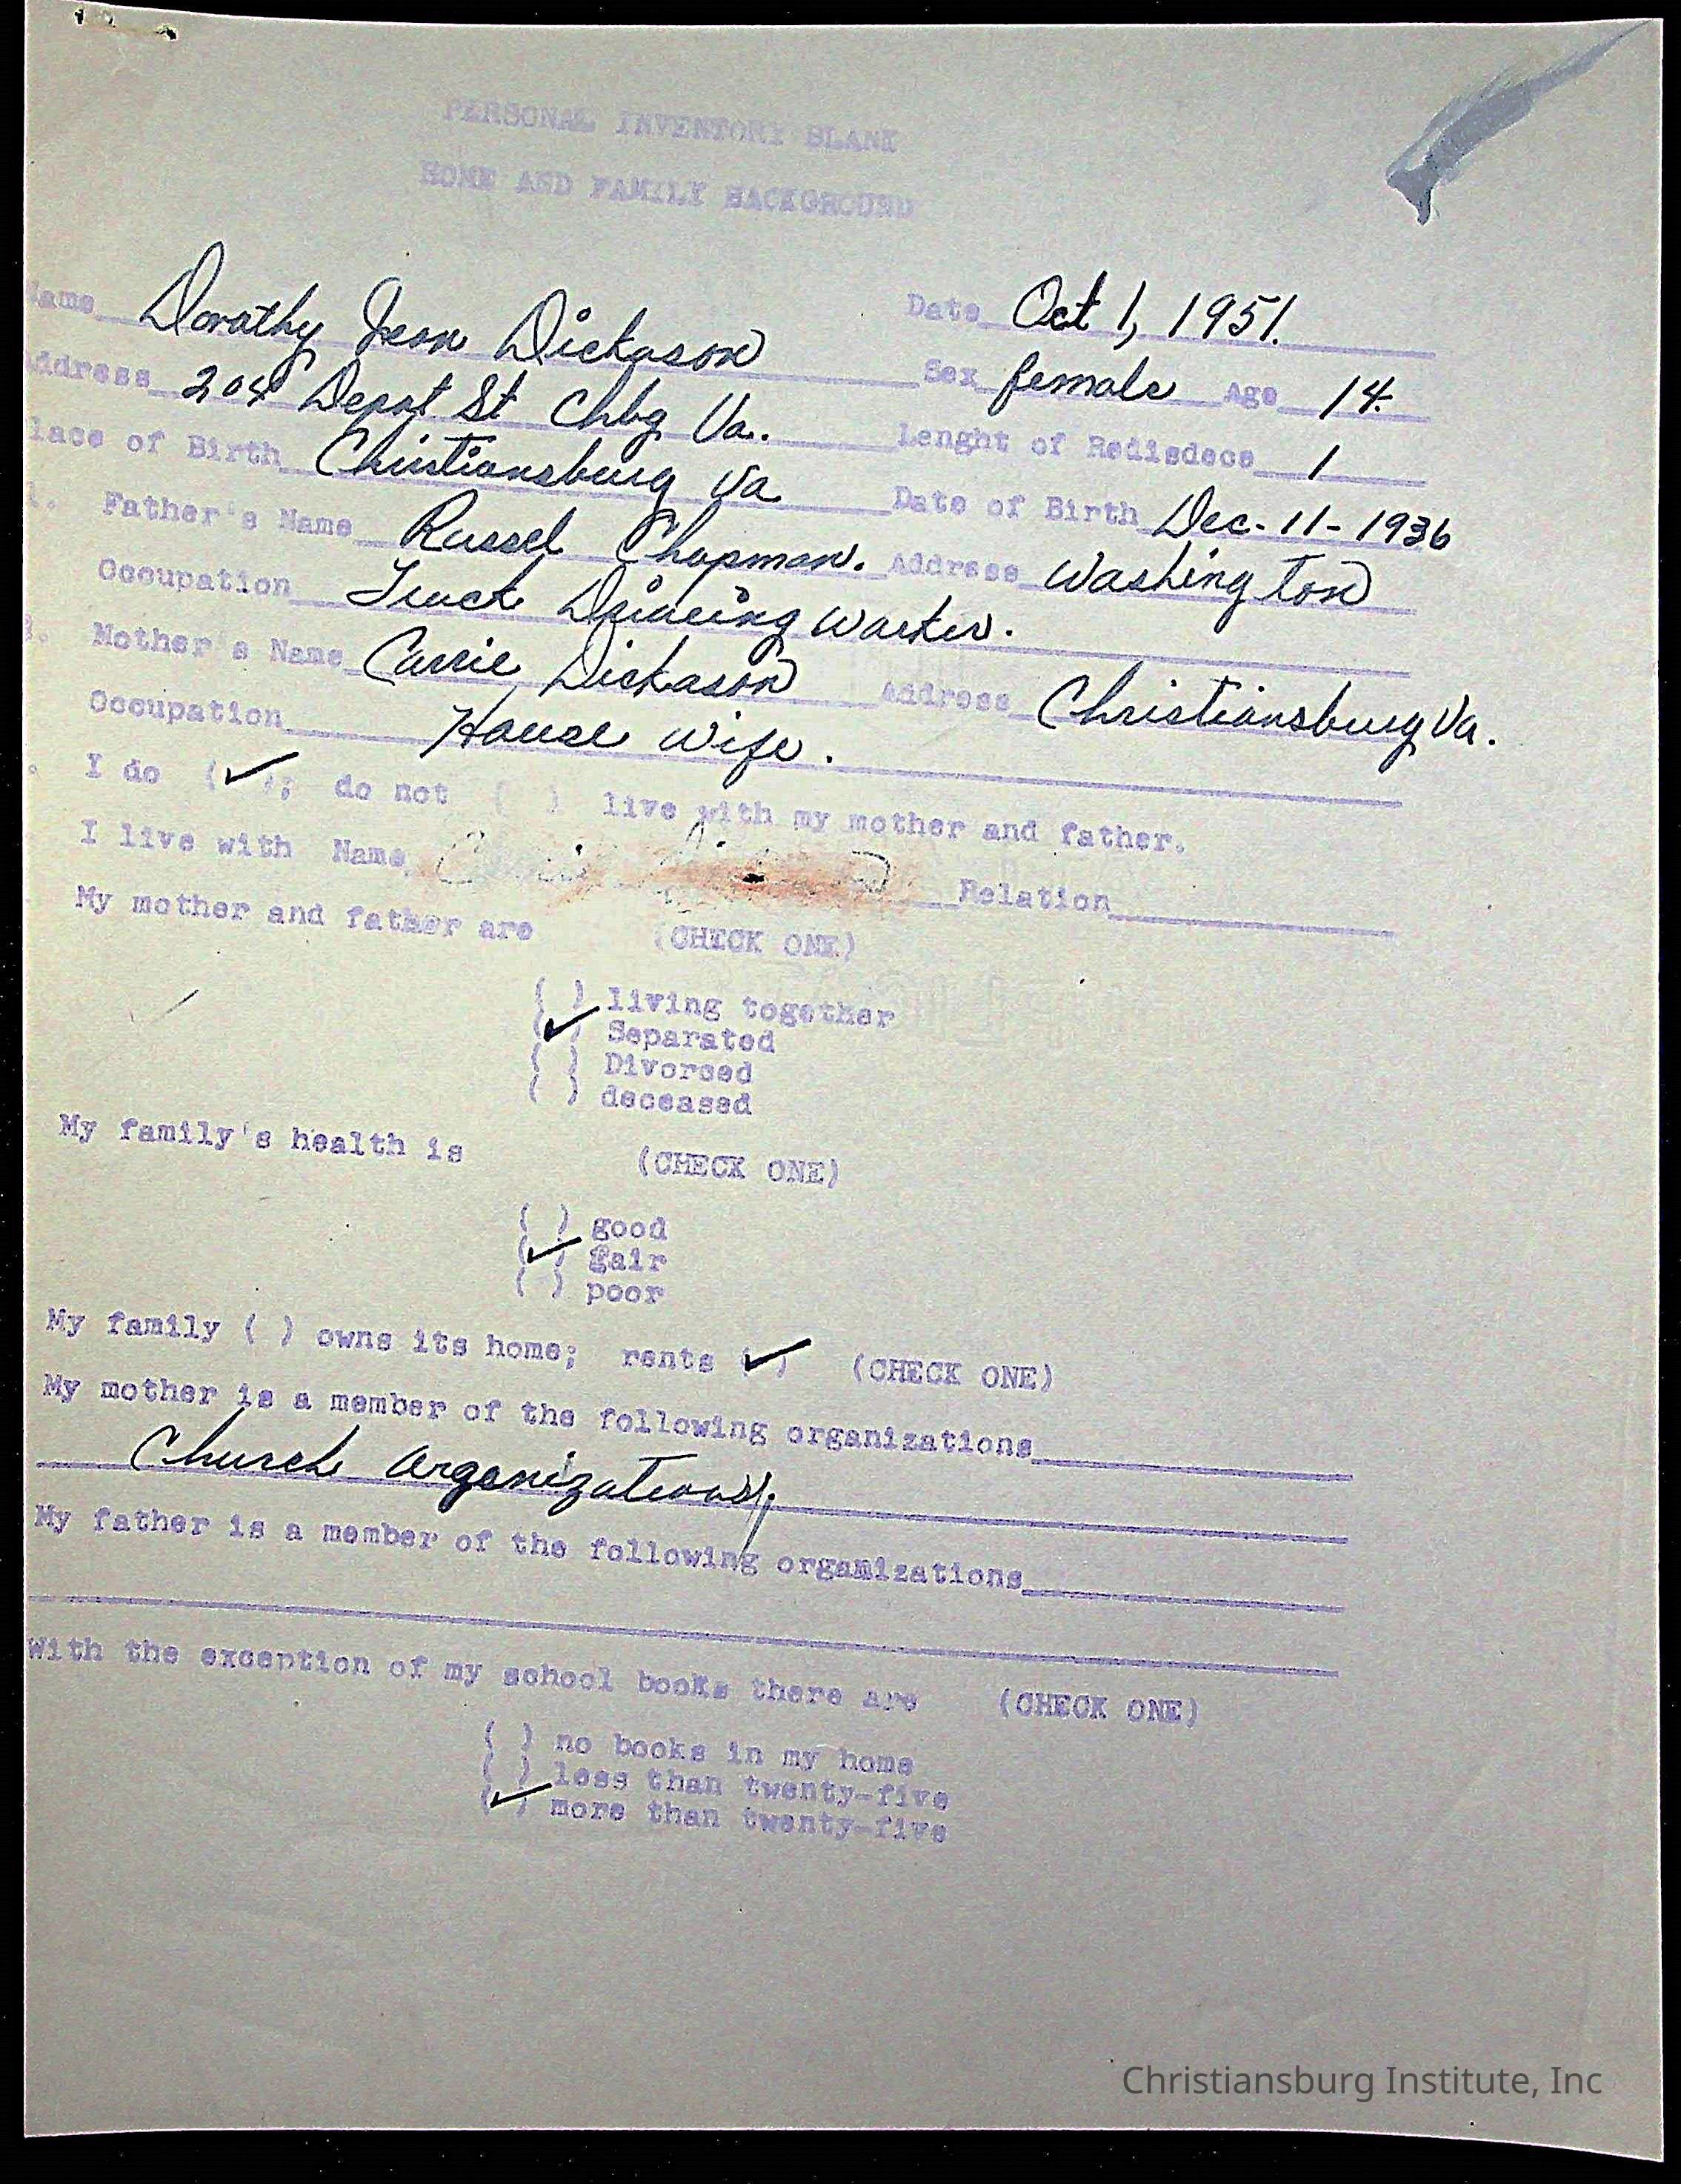 PERSONAL INVENTORY BLANK
HOME AND FAMILY BACKGROUND
Name Dorothy Jean Dickason Date Oct 1, 1951.
Address 204 Depot St Chbg Va. Sex female Age 14.
lace of Birth Christiansburg Va Lenght of Redisdece 1
1. Father's Name Russel Chapman. Date of Birth Dec-11-1936
Address Washington
Occupation Truck Driveing Worker.
2. Mother's Name Carrie Dickason Address Christiansburg Va.
Occupation House Wife.
. I do (✓); do not ( ) live with my mother and father.
I live with Name Relation
My mother and father are (CHECK ONE)
( ) living together
(✓) Separated
( ) Divorsed
( ) deceased
My family's health is (CHECK ONE)
( ) good
(✓) fair
( ) poor
My family ( ) owns its home; rents (✓) (CHECK ONE)
My mother is a member of the following organizations
Church Organizations.
My father is a member of the following organizations
With the exception of my school books there are (CHECK ONE)
( ) no books in my home
( ) less than twenty-five
(✓) more than twenty-five
Christiansburg Institute, Inc